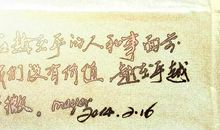 越在乎的人和事面前
我们没有价值,越在乎越
卑微。mayes 2014.2.16